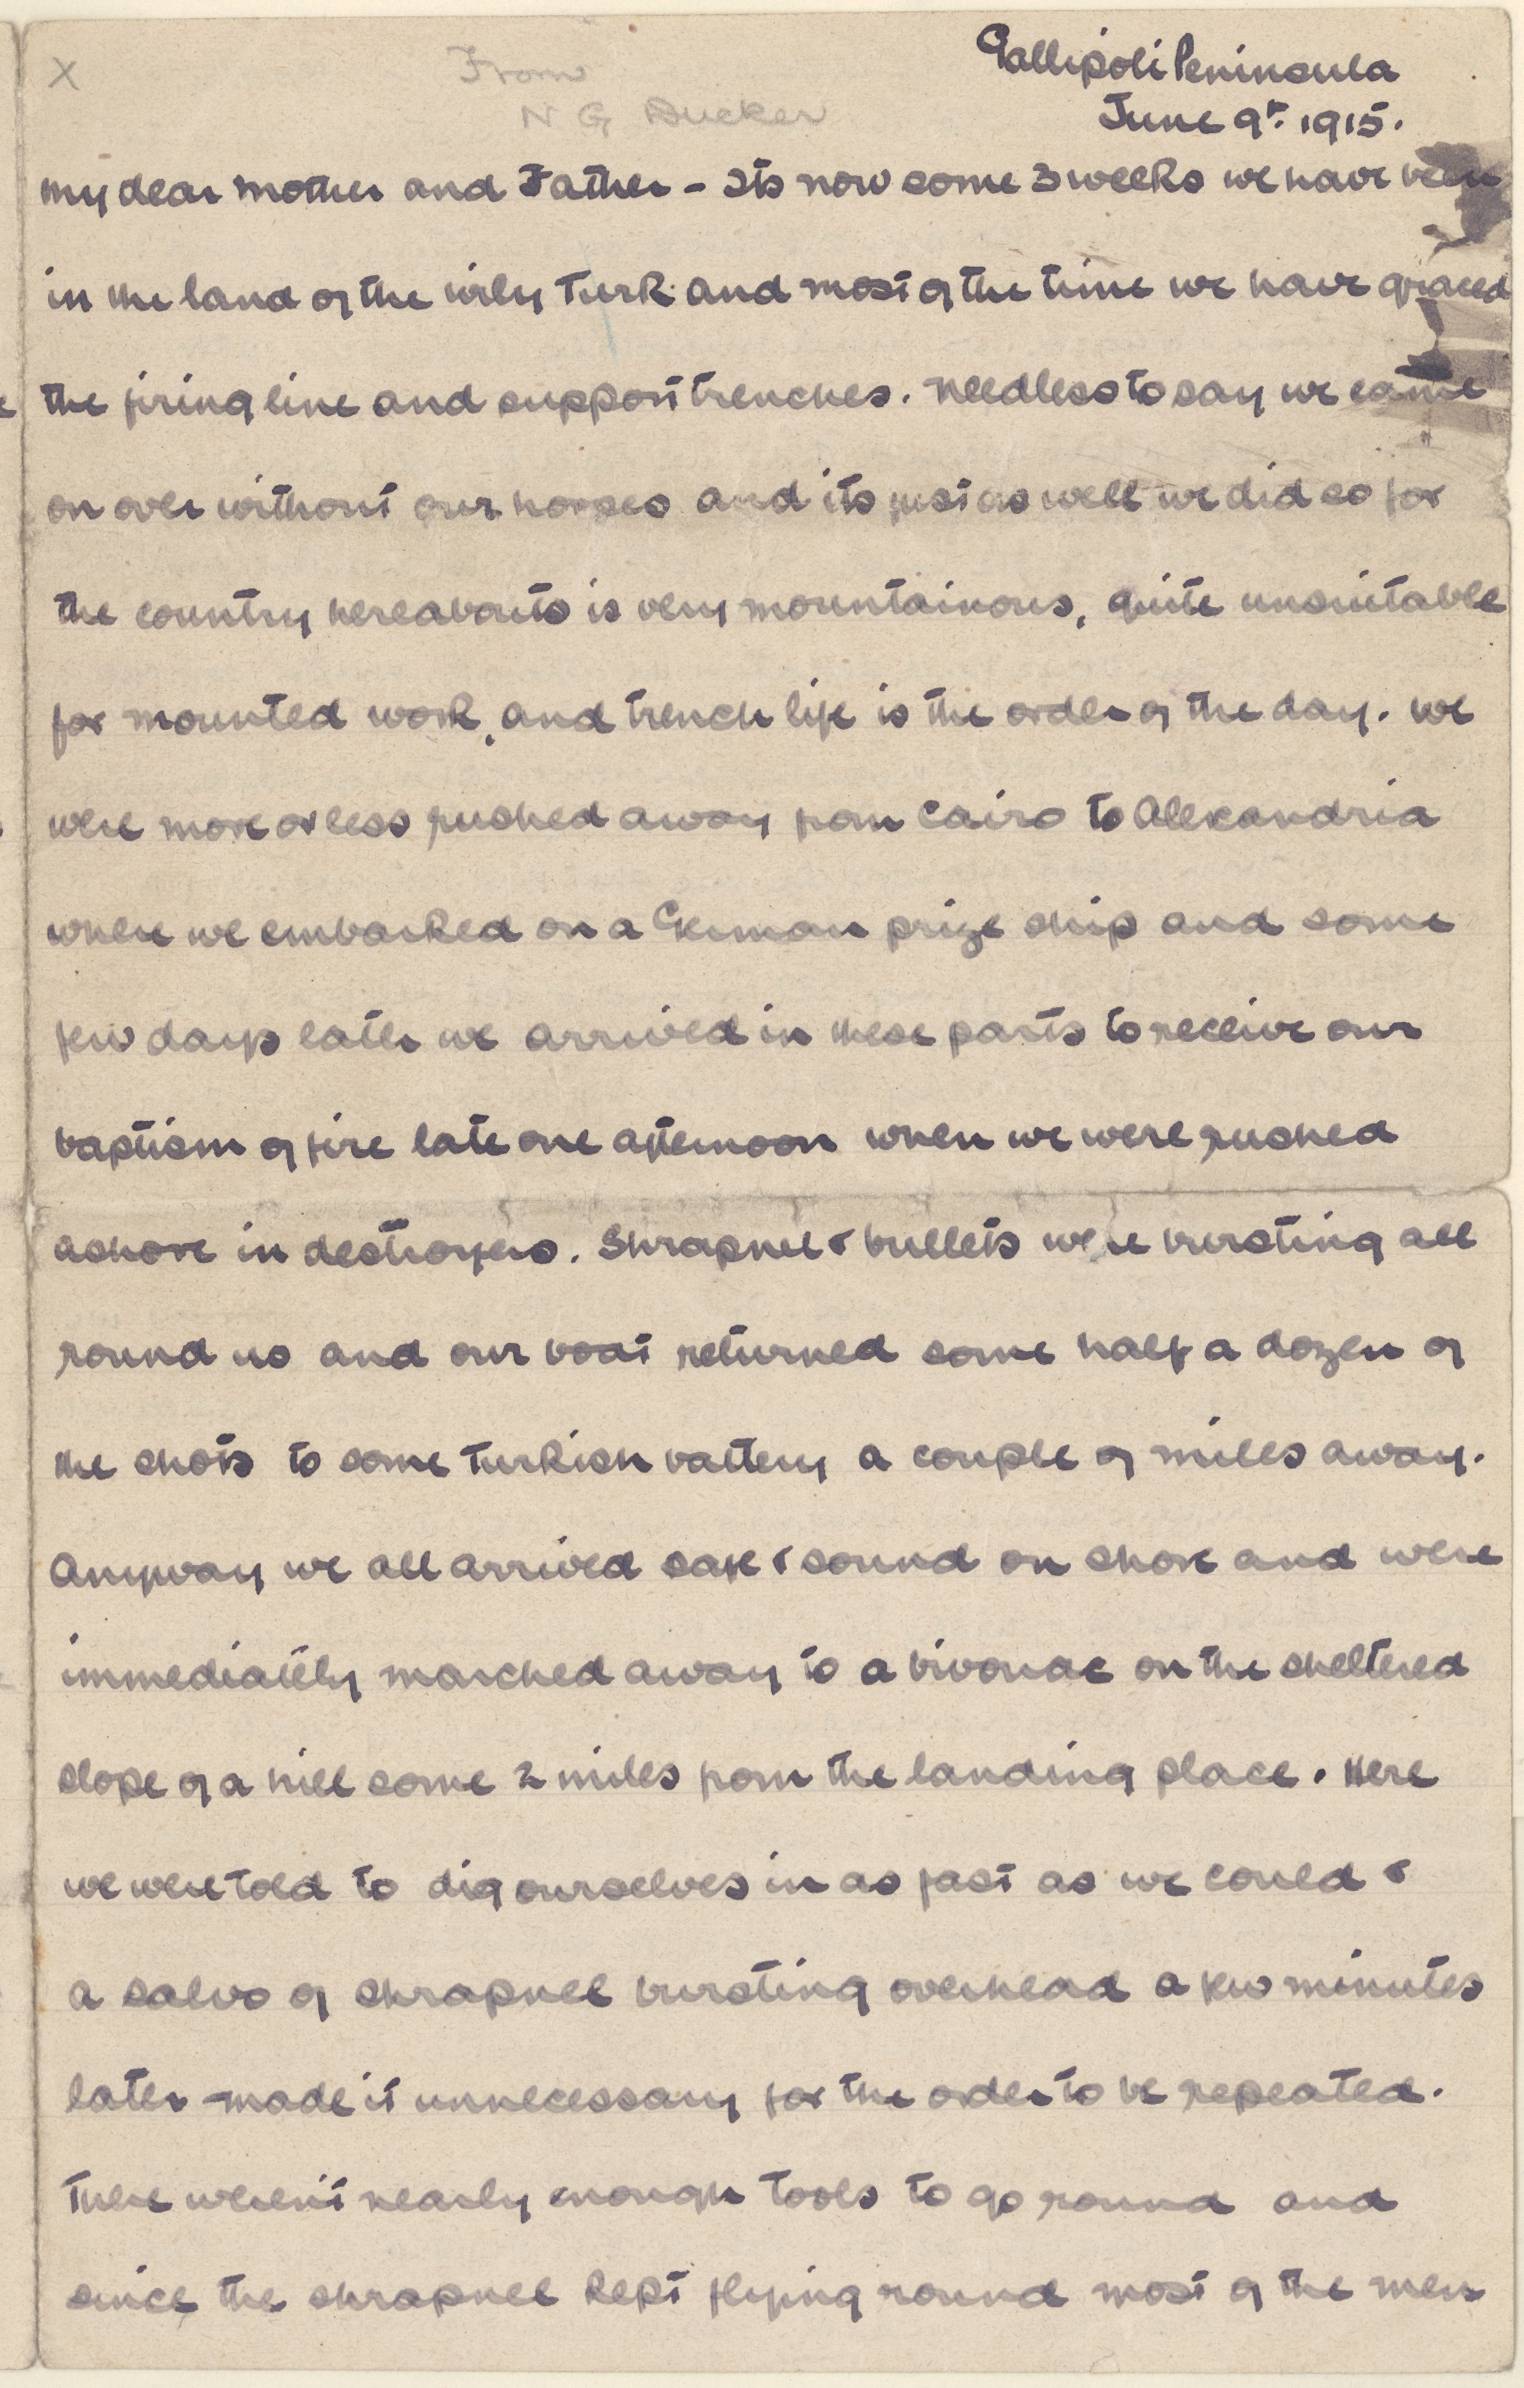 x
From
N G Ducker
Gallipoli Peninsula
June 9th. 1915.
My dear Mother and Father - Its now some 3 weeks we have been
in the land of the wily Turk and most of the time we have graced
the firing line and support trenches. Needless to say we came
on over without our horses and its just as well we did so for
the country hereabouts is very mountainous, quite unsuitable
for mounted work, and trench life is the order of the day. We
were more or less rushed away from Cairo to Alexandria
where we embarked on a German prize ship and some
few days later we arrived in these parts to receive our
baptism of fire late one afternoon when we were rushed
ashore in destroyers. Shrapnel & bullets were bursting all
round us and our boat returned some half a dozen of
the shots to some Turkish battery a couple of miles away.
Anyway we all arrived safe & sound on shore and were
immediately marched away to a bivouac on the sheltered
slope of a hill some 2 miles from the landing place. Here
we were told to dig ourselves in as fast as we could &
a salvo of shrapnel bursting overhead a few minutes
later made it unnecessary for the order to be repeated.
There weren't nearly enough tools to go round and
since the shrapnel kept flying round most of the men